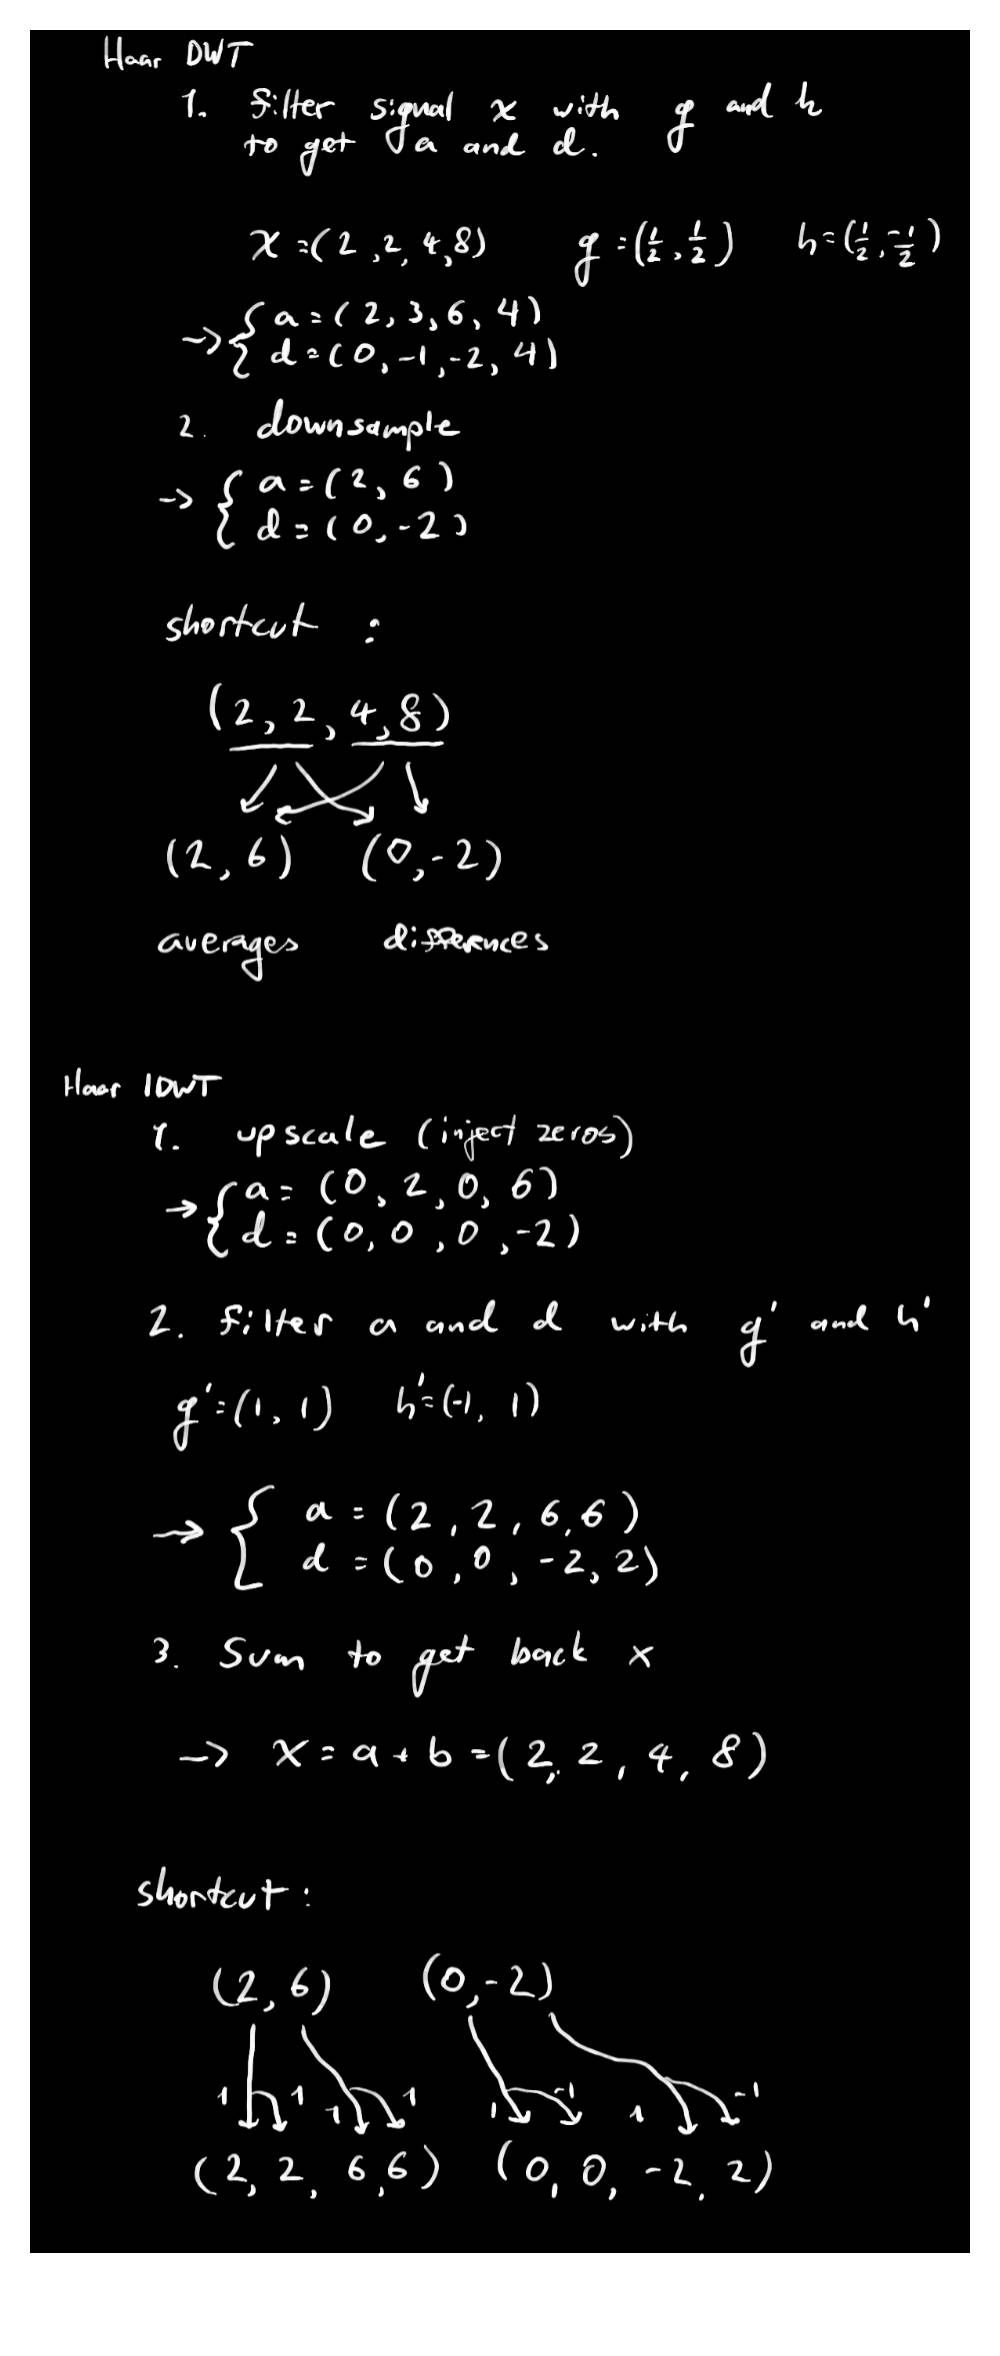 Haar DWT
1. filter signal x with g and h
to get a and d.
x=(2,2,4,8) g=(1/2, 1/2) h=(1/2, -1/2)
-> { a=(2, 3, 6, 4)
d=(0, -1, -2, 4)
2. downsample
-> { a=(2, 6)
d=(0, -2)
shortcut :
(2, 2, 4, 8)
(2, 6) (0, -2)
averages differences
Haar IDWT
1. upscale (inject zeros)
-> { a=(0, 2, 0, 6)
d=(0, 0, 0, -2)
2. filter a and d with g' and h'
g'=(1, 1) h'=(-1, 1)
-> { a=(2, 2, 6, 6)
d=(0, 0, -2, 2)
3. Sum to get back x
-> x=a+b=(2, 2, 4, 8)
shortcut:
(2, 6) (0, -2)
1 1 1 1 1 -1 1 -1
(2, 2, 6, 6) (0, 0, -2, 2)